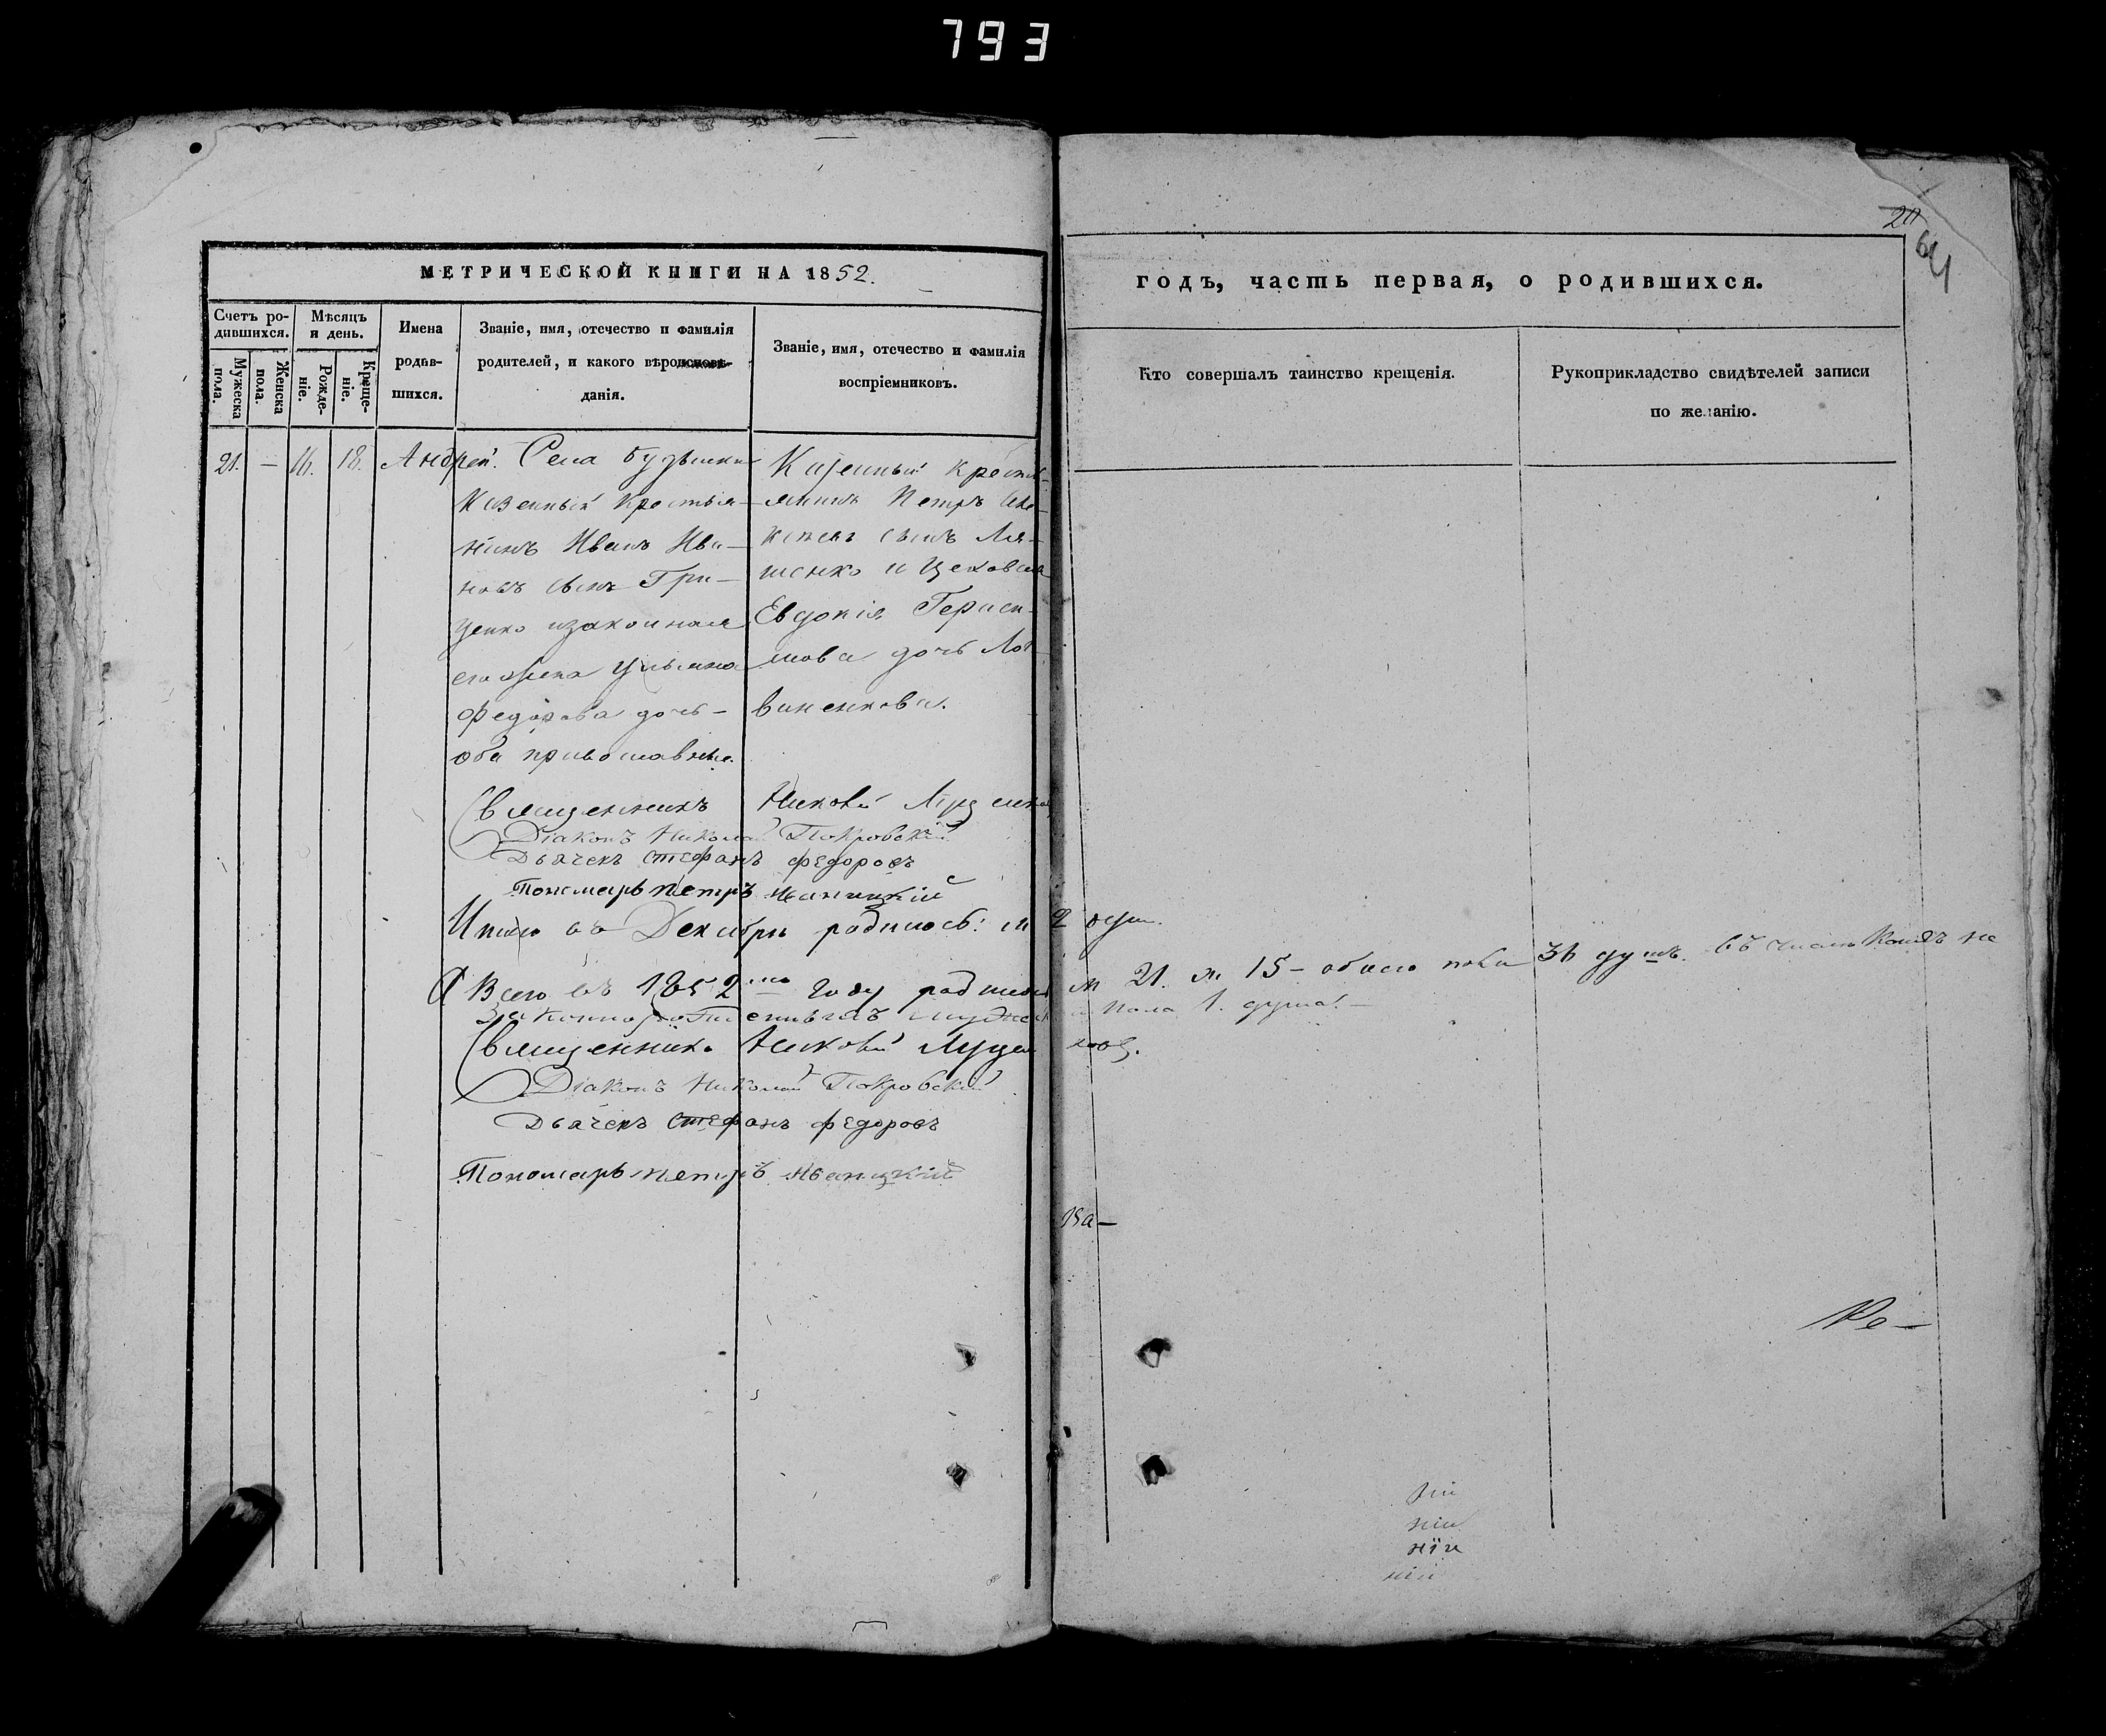 793
20
64
МЕТРИЧЕСКОЙ КНИГИ НА 1852.
годъ, часть первая, о родившихся.
Счетъ родившихся.
Мужеска пола.
Женска пола.
Мѣсяцъ и день.
Рожденіе.
Крещеніе.
Имена
родив-
шихся.
Званіе, имя, отечество и фамилія
родителей, и какого вѣроисповѣ-
данія.
Званіе, имя, отечество и фамилія
воспріемниковъ.
Кто совершалъ таинство крещенія.
Рукоприкладство свидѣтелей записи
по желанію.
21. — 16. 18. Андрей.
Села
Казенный крестья-
нинъ Иванъ Ива-
новъ сынъ Гри-
ценко и законная
его жена Ульяна
Федорова дочь —
оба православные.
Казенный крестья-
нинъ Петръ
сынъ Ля-
шенко и
Евдокія Гераси-
мова дочь Лит-
виненкова.
Священникъ
Діаконъ Николай Покровскій
Дьячекъ Стефанъ Федоровъ
Пономарь Петръ Иваницкій
Итого въ Декабрѣ родилось: м 2 душ.
А Всего въ 1852 году родилось м 21. ж 15 — обоего пола 36 душъ. въ числѣ коихъ не
законнорожденныхъ мужеска пола 1. душа. —
Священникъ
Діаконъ Николай Покровскій
Дьячекъ Стефанъ Федоровъ
Пономарь Петръ Иваницкій
ва —
Ре —
кій
ній
нїи
ніи